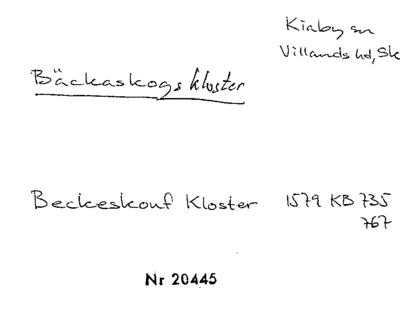 Kiaby sn
Villands hd, Sk
Bäckaskogs kloster
Beckeskouf Kloster 1579 KB 735
767
Nr 20445